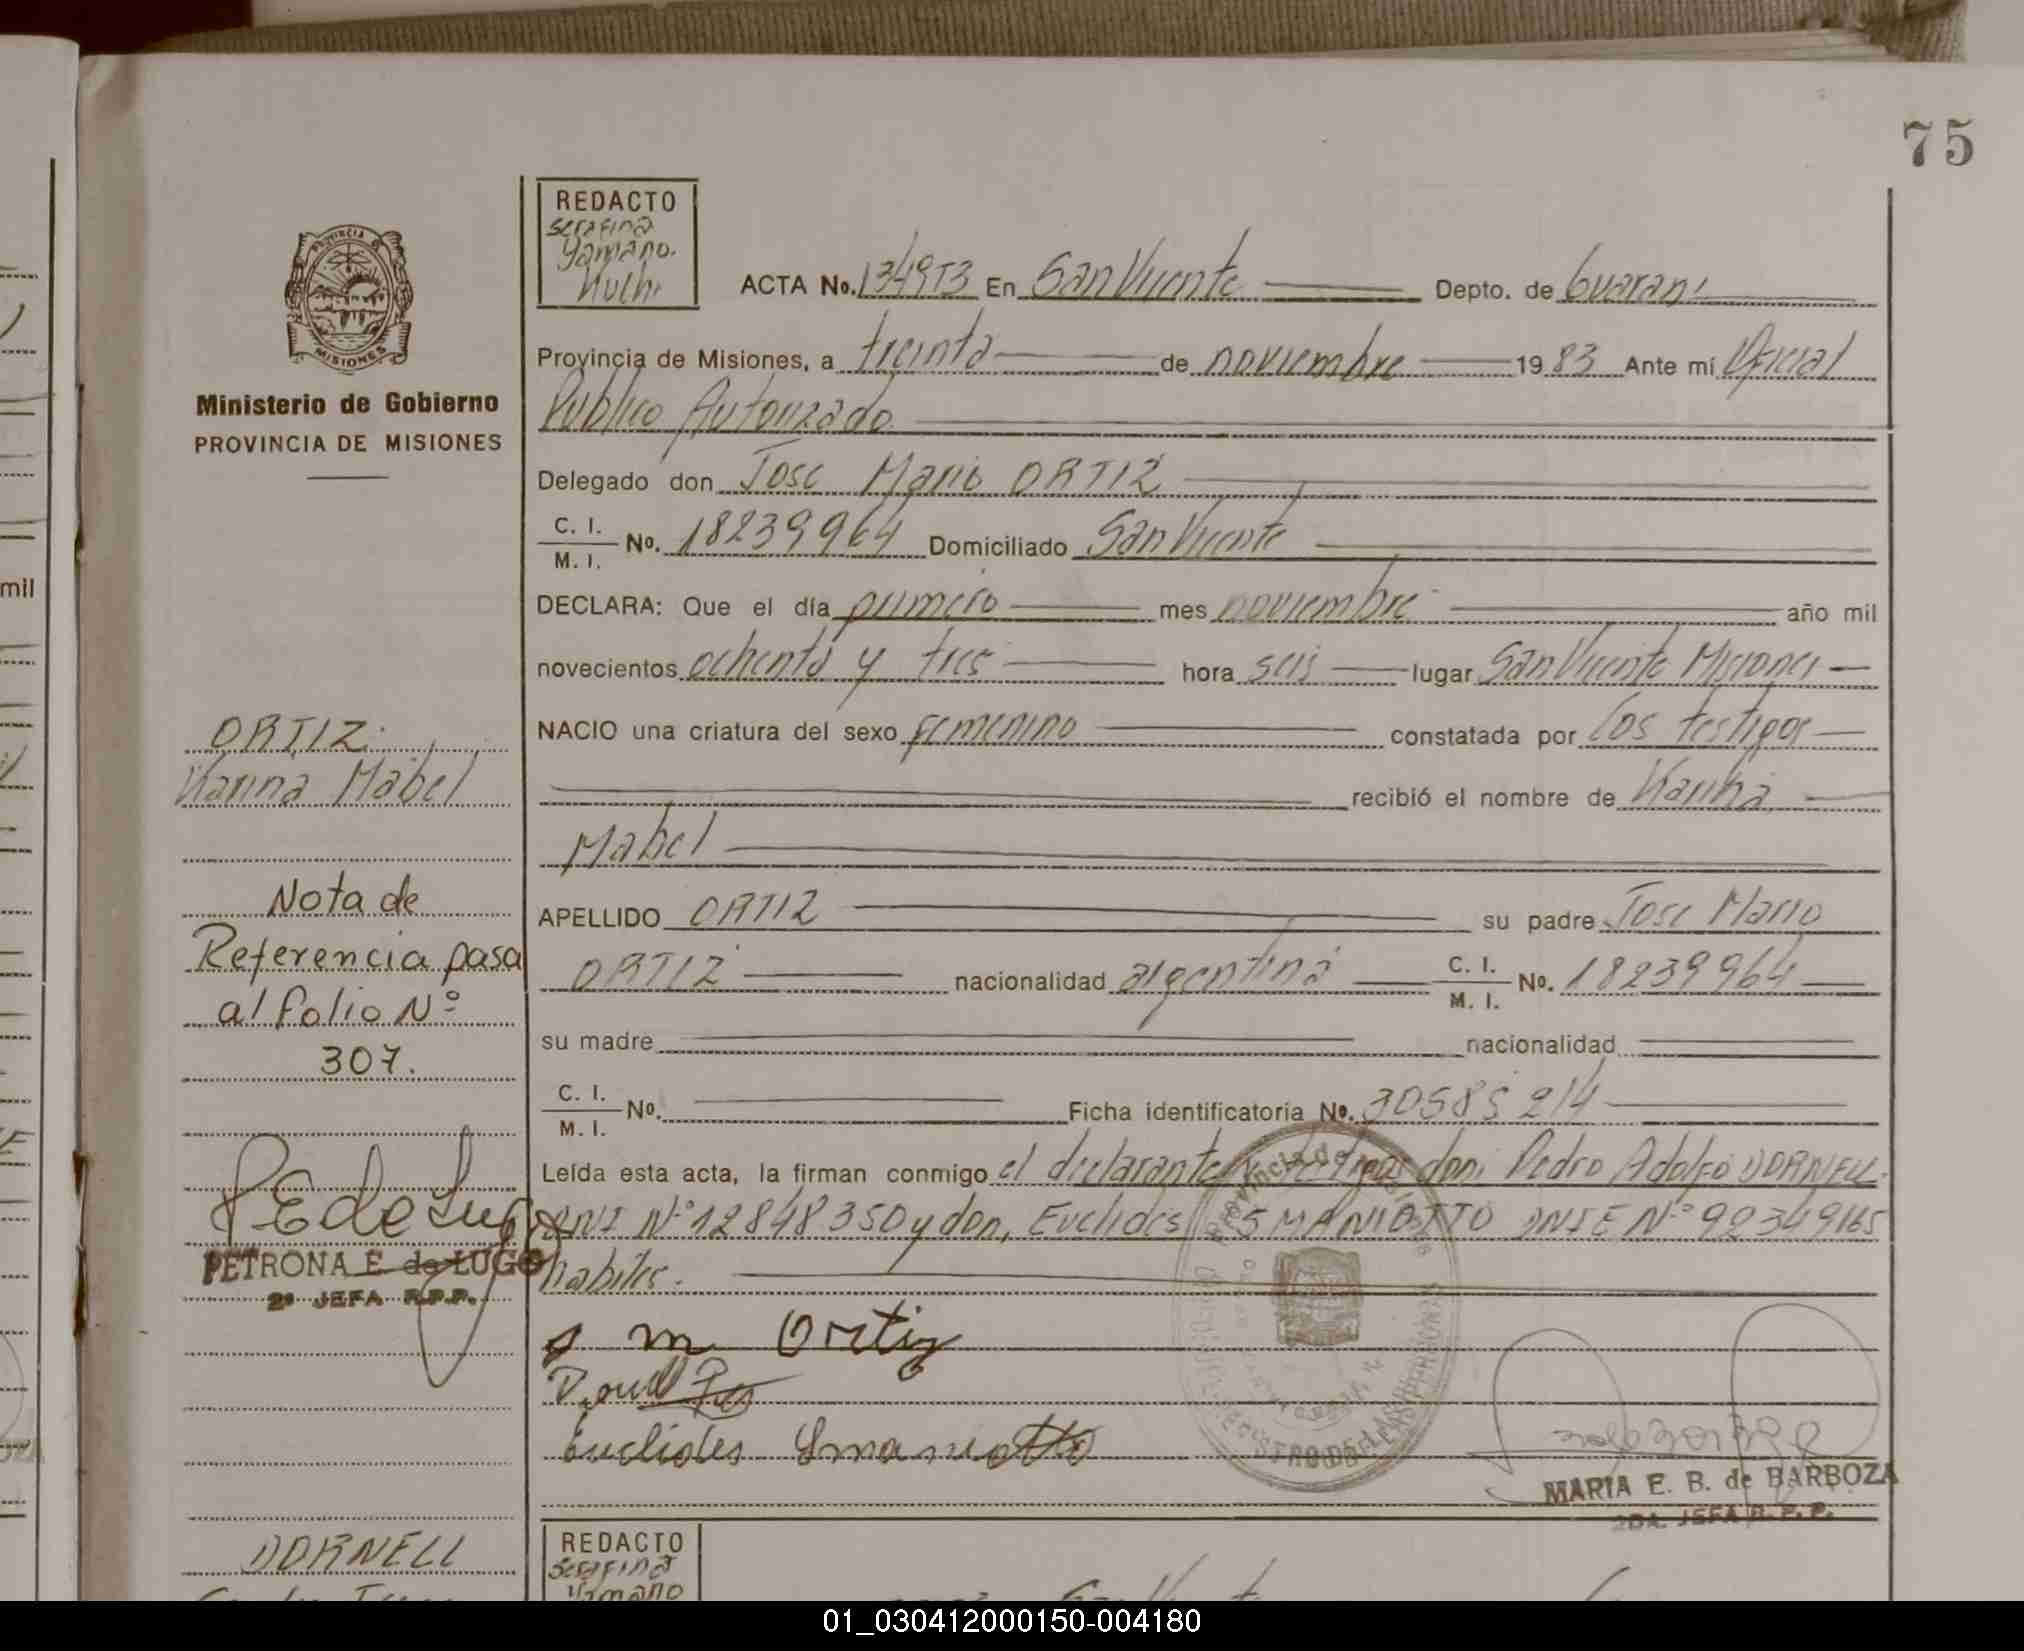 75
REDACTO
Serafina
Yamano.
PROVINCIA DE
MISIONES
ACTA No. 134953 En San Vicente Depto. de Guarani
Provincia de Misiones, a treinta de noviembre 1983 Ante mi Oficial
Publico Autorizado
Ministerio de Gobierno
PROVINCIA DE MISIONES
Delegado don Jose Mario ORTIZ
C. I.
M. I. No. 18239964 Domiciliado San Vicente
DECLARA: Que el día primero mes noviembre año mil
mil
novecientos ochenta y tres hora seis lugar San Vicente Misiones
NACIO una criatura del sexo femenino constatada por los testigos
ORTIZ.
Karina Mabel
recibió el nombre de Karina
Mabel
APELLIDO ORTIZ su padre Jose Mario
ORTIZ nacionalidad argentina C. I. M. I. No. 18239964
su madre nacionalidad
C. I.
M. I. No. Ficha identificatoria No. 30585214
Nota de
Referencia pasa
al folio Nº
307.
Leída esta acta, la firman conmigo el declarante y testigos don: Pedro Adolfo DORNELL
DNI Nº 12848350 y don, Euclides SMANIOTTO DNIE Nº 92349165
habiles.
PEdeLugo
PETRONA E. de LUGO
2ª JEFA R.P.P.
Provincia de Misiones
J m Ortiz
Euclides Smaniotto
MARIA E. B. de BARBOZA
2DA. JEFA R. P. P.
DORNELL
REDACTO
Serafina
Yamano
01_030412000150-004180